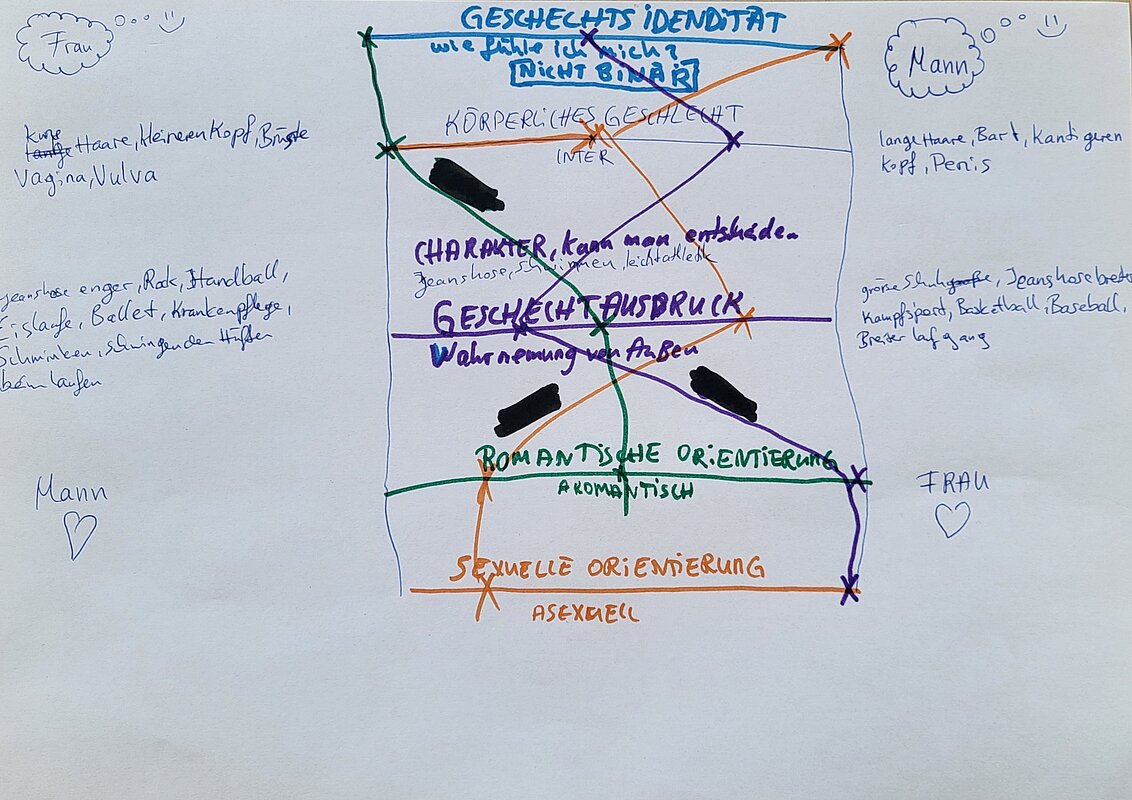 GESCHECHTS IDENDITÄT
wie fühle ich mich?
NICHT BINÄR
Frau
Mann
KÖRPERLICHES GESCHLECHT
INTER
kurze
lange Haare, kleineren Kopf, Brüste
Vagina, Vulva
lange Haare, Bart, Kantigeren
Kopf, Penis
CHARAKTER, kann man entscheiden
Jeanshose, Schwimmen, leichtatletik
GESCHECHTAUSDRUCK
Wahrnemung von Außen
Jeanshose enger, Rock, Handball,
Eislaufe, Ballet, Krankenpflege,
Schminken, schwingenden Hüften
beim laufen
Jeanshose breiter
Kampfsport, Basketball, Baseball,
Breiter laf gang
ROMANTISCHE ORIENTIERUNG
AROMANTISCH
Mann
FRAU
SEXUELLE ORIENTIERUNG
ASEXUELL